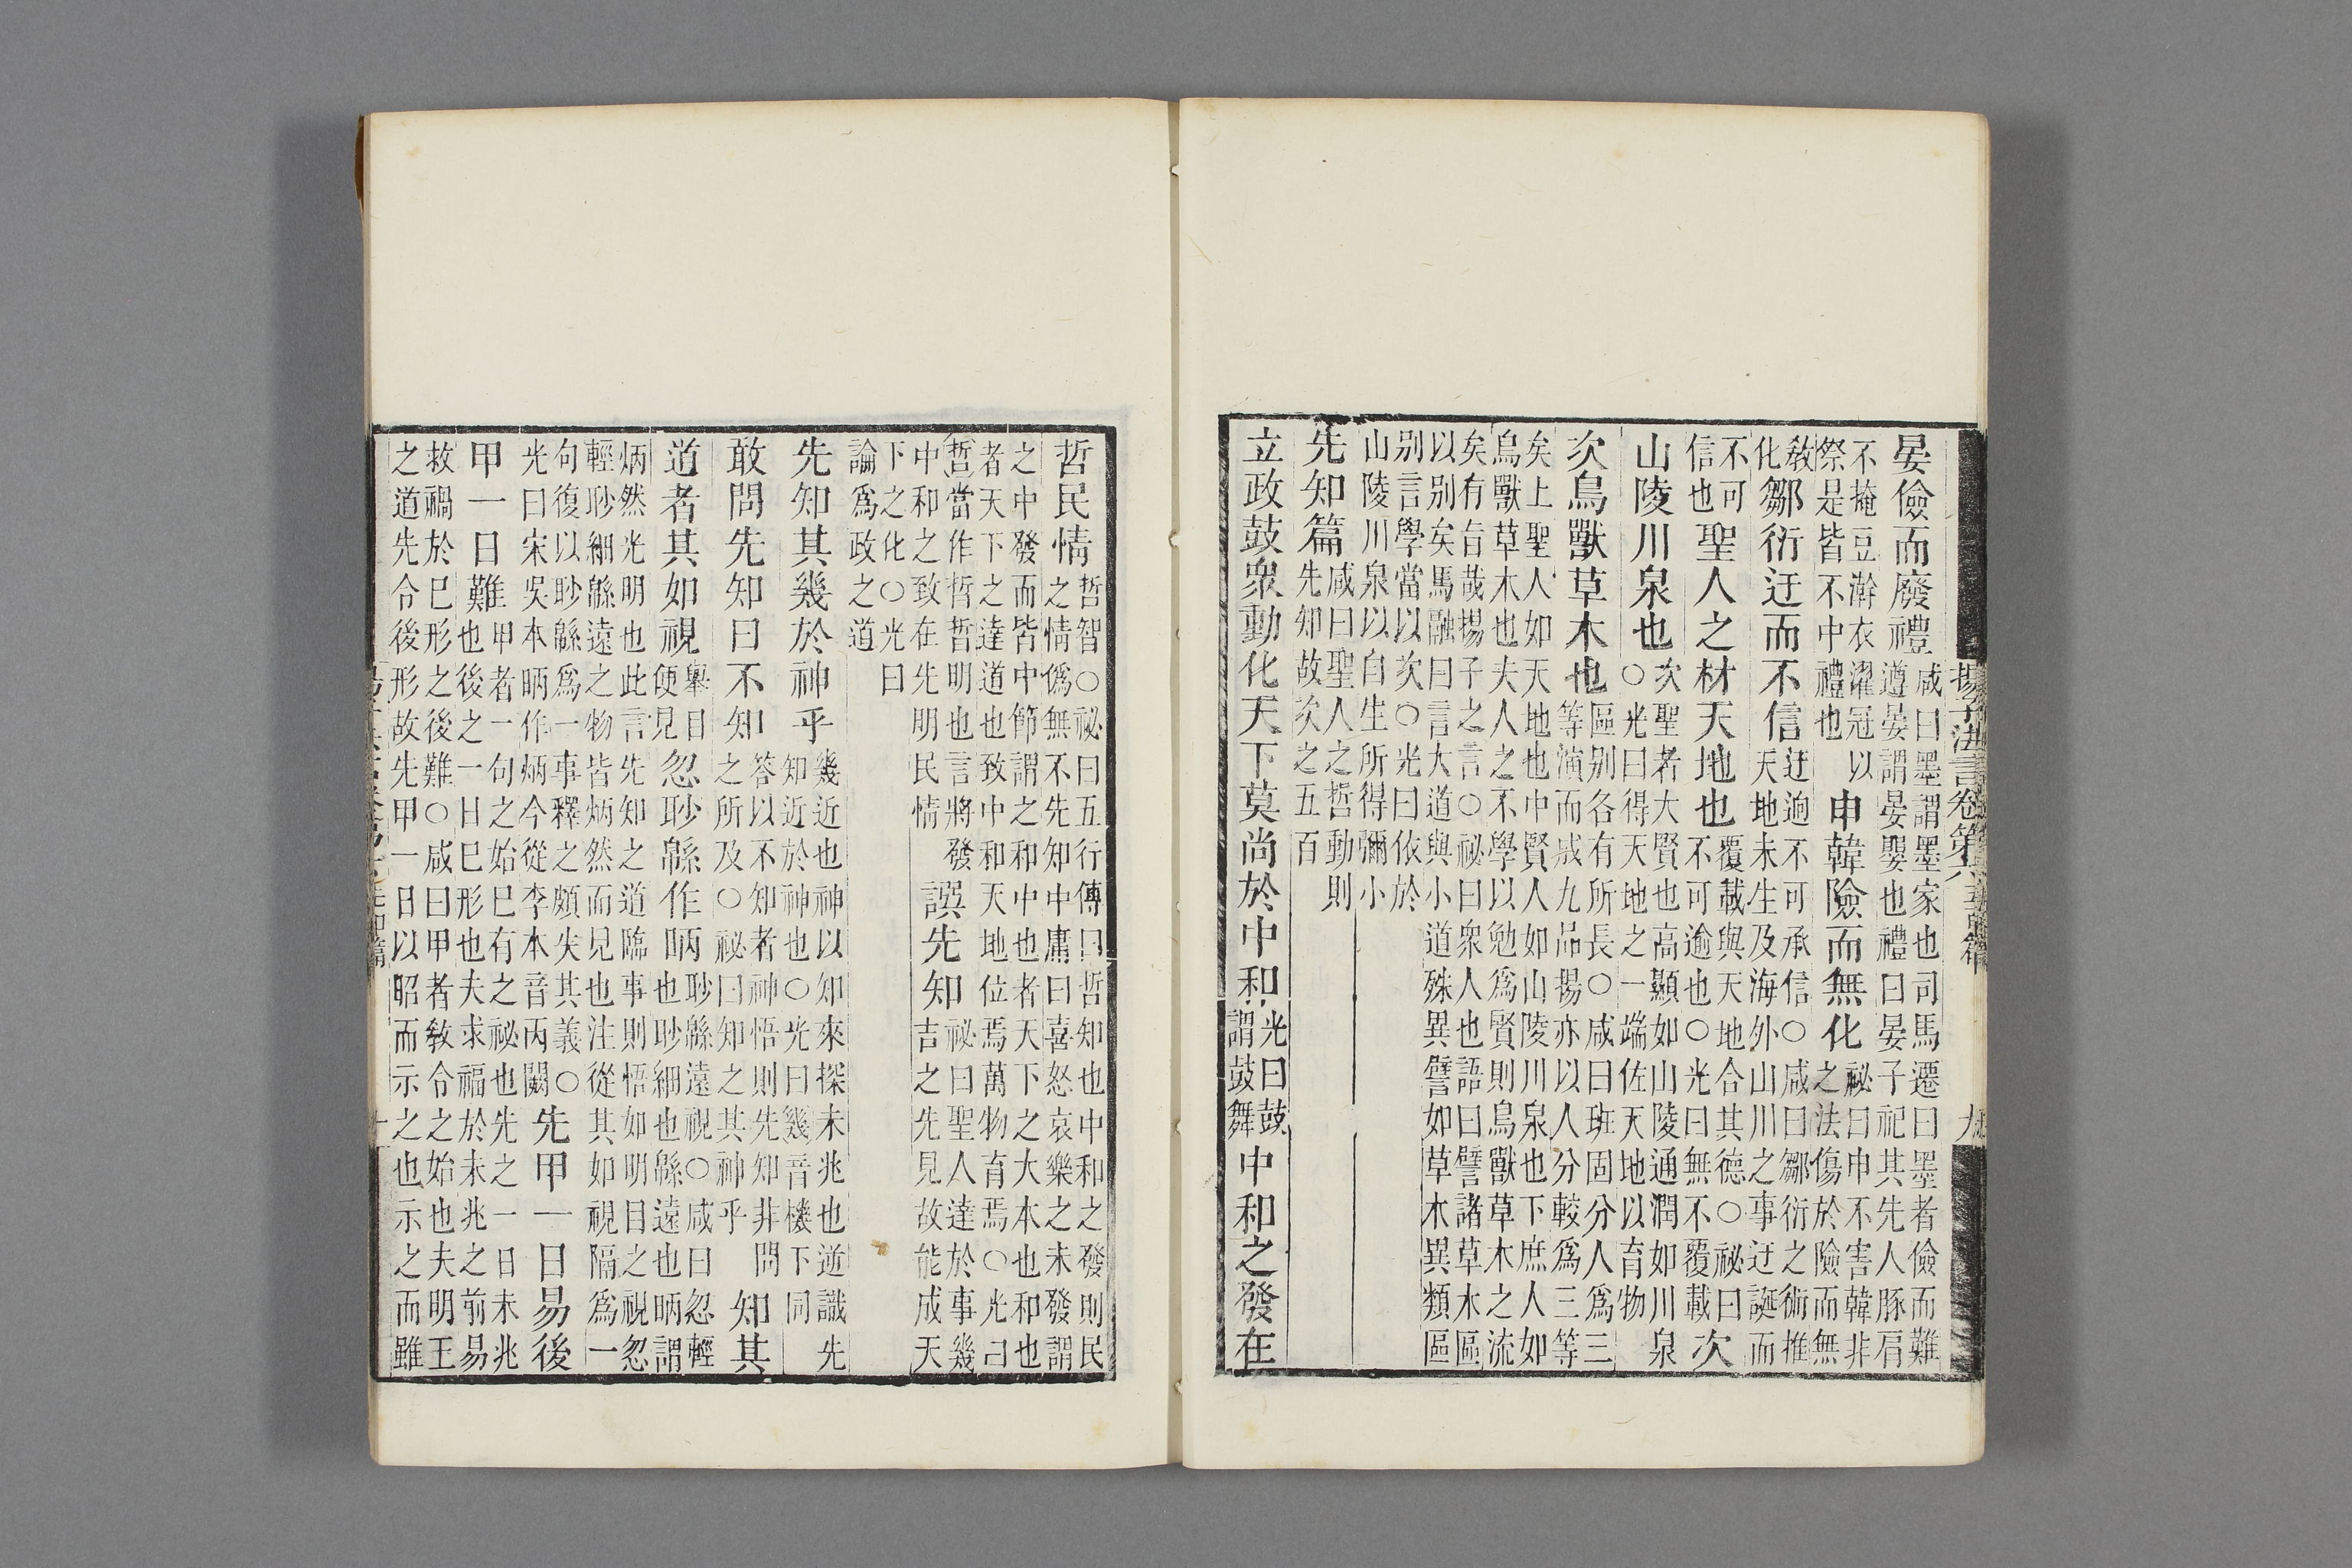 揚子法言卷第六 五百篇 九
晏儉而廢禮 咸曰墨謂墨家也司馬遷曰墨者儉而難
遵晏謂晏嬰也禮曰晏子祀其先人豚肩
不掩豆澣衣濯冠以
祭是皆不中禮也 申韓險而無化 祕曰申不害韓非
之法傷於險而無
敎化 鄒衍迂而不信 迂逈不可承信○咸曰鄒衍之術推
天地未生及海外山川之事迂誕而
不可
信也 聖人之材天地也 覆載與天地合其德○祕曰
不可逾也○光曰無不覆載 次
山陵川泉也 次聖者大賢也高顯如山陵通潤如川泉
○光曰得天地之一端佐天地以育物
次鳥獸草木也 區別各有所長○咸曰班固分人爲三
等演而成九品揚亦以人分較爲三等
矣上聖人如天地也中賢人如山陵川泉也下庶人如
鳥獸草木也夫人之不學以勉爲賢則鳥獸草木之流
矣有旨哉揚子之言○祕曰衆人也語曰譬諸草木區
以別矣馬融曰言大道與小道殊異譬如草木異類區
別言學當以次○光曰依於
山陵川泉以自生所得彌小
先知篇 咸曰聖人之哲動則
先知故次之五百
立政鼓衆動化天下莫尚於中和 光曰鼓
謂鼓舞 中和之發在
哲民情 哲智○祕曰五行傳曰哲知也中和之發則民
之情僞無不先知中庸曰喜怒哀樂之未發謂
之中發而皆中節謂之和中也者天下之大本也和也
者天下之達道也致中和天地位焉萬物育焉○光曰
哲當作晢晢明也言將發
中和之致在先明民情 譔先知 祕曰聖人達於事幾
吉之先見故能成天
下之化○光曰
論爲政之道
先知其幾於神乎 幾近也神以知來探未兆也逆識先
知近於神也○光曰幾音機下同
敢問先知曰不知 答以不知者神悟則先知非問
之所及○祕曰知之其神乎 知其
道者其如視 舉目
便見 忽眇緜作昞 眇緜遠視○咸曰忽輕
也眇細也緜遠也昞謂
炳然光明也此言先知之道臨事則悟如明目之視忽
輕眇細緜遠之物皆炳然而見也注從其如視隔爲一
句復以眇緜爲一事釋之頗失其義○
光曰宋吳本昞作炳今從李本音丙闕 先甲一日易後
甲一日難 甲者一句之始已有之祕也先之一日未兆
也後之一日已形也夫求福於未兆之前易
救禍於已形之後難○咸曰甲者敎令之始也夫明王
之道先令後形故先甲一日以昭而示之也示之而雖